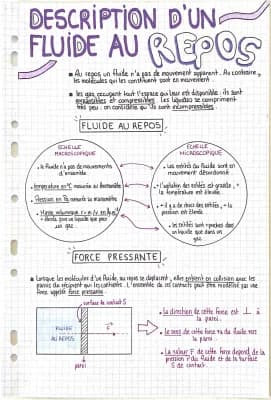 DESCRIPTION D'UN
FLUIDE AU REPOS
Au repos un fluide n'a pas de mouvement apparent. Au contraire,
les molécules qui les constituent sont en mouvement.
les gaz occupent tout l'espace qui leur est disponible : ils sont
expansibles et compressibles. Les liquides se compriment
très peu : on considère qu'ils sont incompressibles.
FLUIDE AU REPOS
ECHELLE
MACROSCOPIQUE
le fluide n'a pas de mouvements
d'ensemble
température en °C mesurée au thermomètre
Pression en Pa mesurée au manomètre
Masse volumique
élevée pour un liquide que pour
un gaz
ECHELLE
MICROSCOPIQUE
Les entités du fluide sont en
mouvement désordonné
l'agitation des entités est grande,
la température est élevée
il y a de chocs des entités,
pression est élevée
les entités sont + proches dans
un liquide que dans un
gaz
FORCE PRESSANTE
Lorsque les molécules d'un fluide, au repos se déplacent, elles entrent en collision avec les
parois du récipient qui les contient. L'ensemble de ces contacts peut être modélisé par une
force appelée force pressante.
surface de contact S
FLUIDE
AU REPOS
F
paroi
La direction de cette force est ⊥ à
la paroi.
Le sens de cette force va du fluide vers
la paroi.
La valeur F de cette force dépend de la
pression P du fluide et de la surface
S de contact.